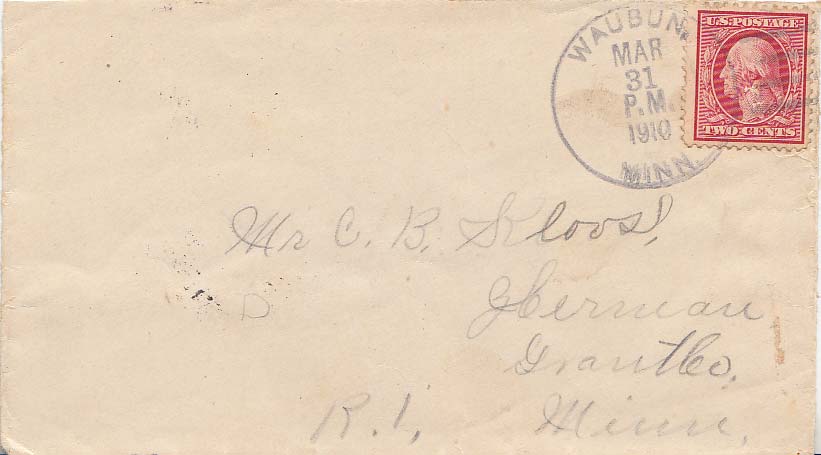 WAUBUN,
MAR
31
P.M.
1910
MINN.
U.S. POSTAGE
TWO CENTS
Mr C. B. Kloos,
Herman
Grant Co,
R. 1, Minn,